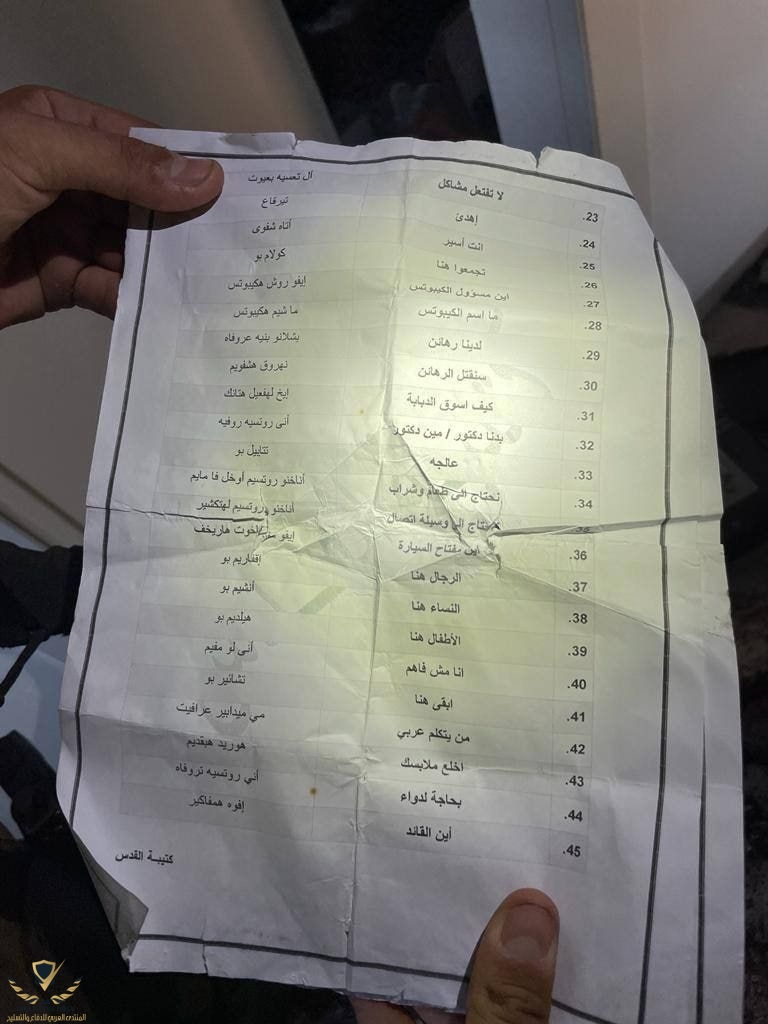 23. لا تفتعل مشاكل ال تعسيه بعيوت
24. إهدئ تيرقاع
25. انت أسير أتاه شفوى
26. تجمعوا هنا كولام بو
27. اين مسؤول الكيبوتس إيفو روش هكيبوتس
28. ما اسم الكيبوتس ما شيم هكيبوتس
29. لدينا رهائن يشلانو بنيه عروفاه
30. سنقتل الرهائن نهروق هشفويم
31. كيف اسوق الدبابة إيخ لهفعيل هتانك
32. بدنا دكتور / مين دكتور أنى روتسيه روفيه
33. عالجه تتابيل بو
34. نحتاج الى طعام وشراب أناخنو روتسيم أوخل فا مايم
35. نحتاج إلى وسيلة اتصال أناخنو روتسيم لهتكشير
36. اين مفتاح السيارة إيفو هاريخف
37. الرجال هنا إقفاريم بو
38. النساء هنا أنشيم بو
39. الأطفال هنا هيلديم بو
40. انا مش فاهم أنى لو مفيم
41. ابقى هنا تشائير بو
42. من يتكلم عربي مي ميدابير عرافيت
43. اخلع ملابسك هوريد هبقديم
44. بحاجة لدواء أني روتسيه تروفاه
45. أين القائد إفوه همفاكير
كتيبة القدس
المنتدى العربي للدفاع والتسليح